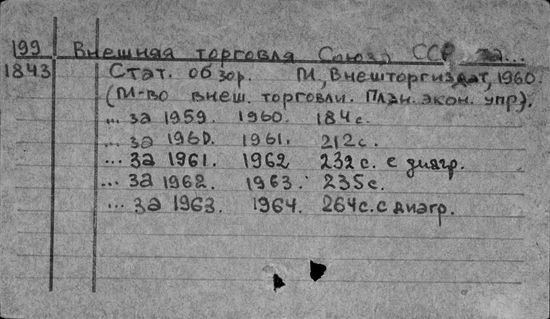 199 Внешняя торговля Союза ССР за...
1843 Стат. обзор. М., Внешторгиздат, 1960.
(М-во внеш. торговли. План. экон. упр).
... за 1959. 1960. 184с.
... за 1960. 1961. 212с.
... за 1961. 1962 232с. с диагр.
... за 1962. 1963. 235с.
... за 1963. 1964. 264с. с диагр.